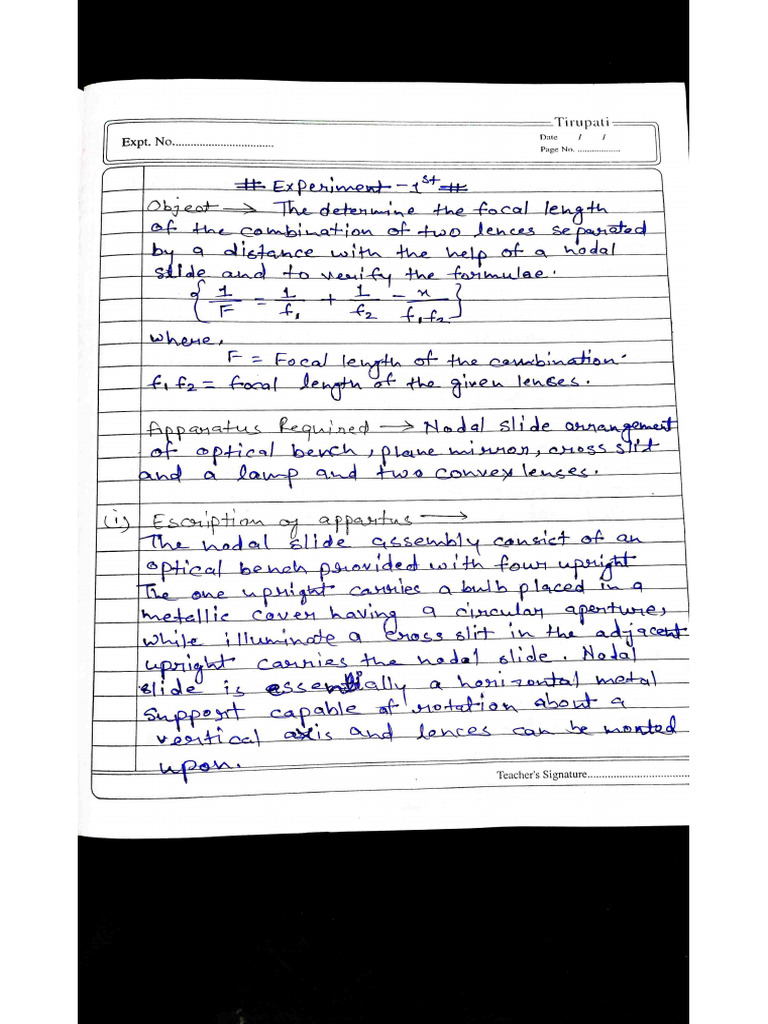 Tirupati
Expt. No.................................
Date / /
Page No. .................
# Experiment - 1st #
Object → The determine the focal length
of the combination of two lences separated
by a distance with the help of a nodal
slide and to verify the formulae.
{ 1/F = 1/f₁ + 1/f₂ - x/f₁f₂ }
where,
F = Focal length of the combination.
f₁ f₂ = focal length of the given lenses.
Apparatus Required → Nodal slide arrangement
of optical bench, plane mirror, cross slit
and a lamp and two convex lenses.
(i) Escription of appartus →
The nodal slide assembly consist of an
optical bench provided with four upright
The one upright carries a bulb placed in a
metallic cover having a circular aperture,
while illuminate a cross slit in the adjacent
upright carries the nodal slide. Nodal
slide is essentially a horizontal metal
support capable of rotation about a
vertical axis and lences can be monted
upon.
Teacher's Signature..............................